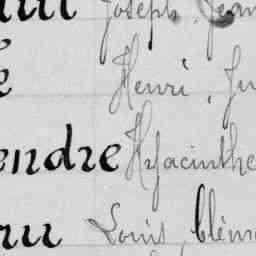 Joseph, Jean
Henri, Ju
endre Hyacinthe
Louis, Cléme